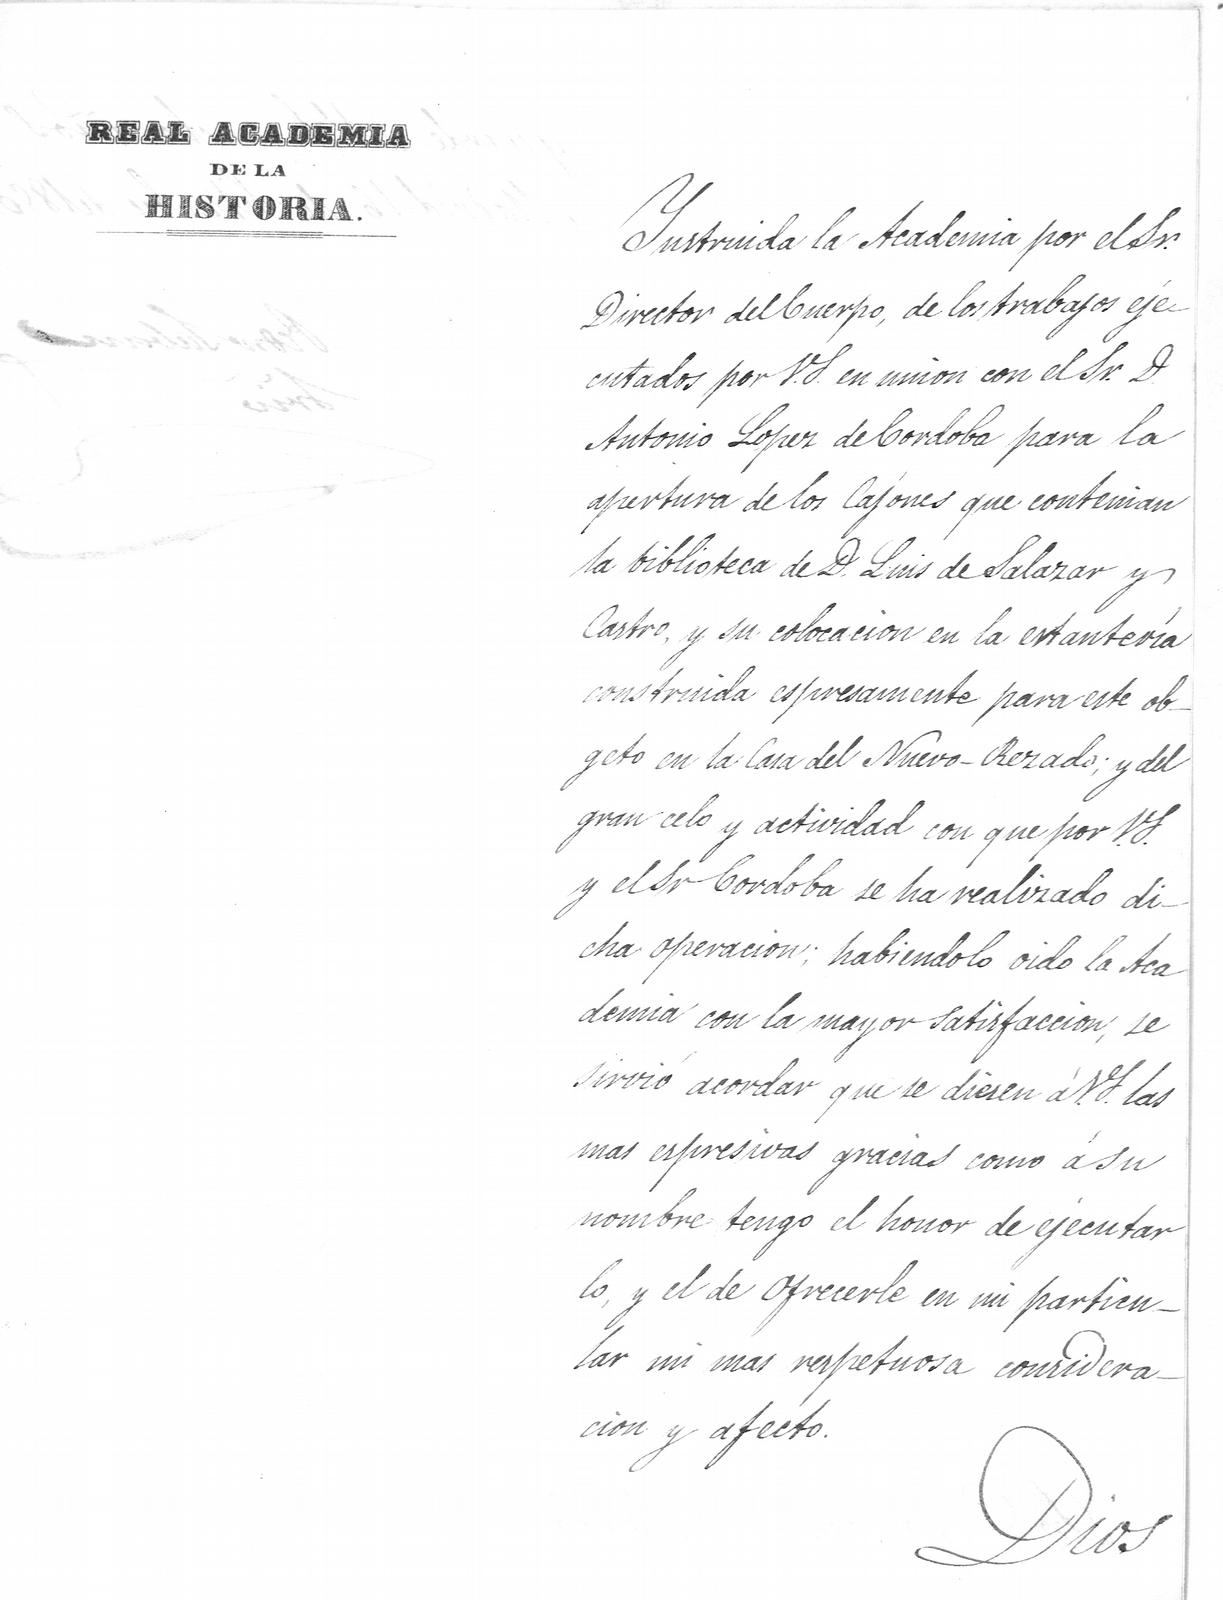 REAL ACADEMIA
DE LA
HISTORIA.
Instruida la Academia por el Sr.
Director del Cuerpo, de los trabajos eje-
cutados por V.S. en union con el Sr. D.
Antonio Lopez de Cordoba para la
apertura de los Cajones que contenian
la biblioteca de D. Luis de Salazar y
Castro, y su colocacion en la estantería
construida espresamente para este ob-
geto en la Casa del Nuevo-Rezado; y del
gran celo y actividad con que por V.S.
y el Sr Cordoba se ha realizado di-
cha operacion; habiendolo oido la Aca
demia con la mayor satisfaccion, se
sirvió acordar que se diesen á V.S. las
mas espresivas gracias como á su
nombre tengo el honor de ejecutar
lo, y el de ofrecerle en mi particu-
lar mi mas respetuosa considera-
cion y afecto.
Dios